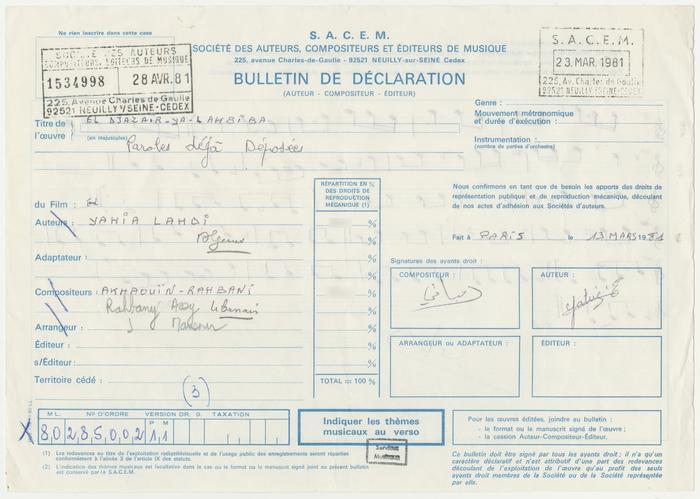 Ne rien inscrire dans cette case
SOCIÉTÉ DES AUTEURS
COMPOSITEURS, ÉDITEURS DE MUSIQUE
1534998 28 AVR. 81
225, Avenue Charles de Gaulle
92521 NEUILLY/SEINE-CEDEX
S. A. C. E. M.
SOCIÉTÉ DES AUTEURS, COMPOSITEURS ET ÉDITEURS DE MUSIQUE
225, avenue Charles-de-Gaulle - 92521 NEUILLY-sur-SEINE Cedex
BULLETIN DE DÉCLARATION
(AUTEUR - COMPOSITEUR - ÉDITEUR)
S. A. C. E. M.
23. MAR. 1981
225, Av. Charles de Gaulle
92521 NEUILLY/SEINE-CEDEX
Genre :
Mouvement métronomique
et durée d'exécution :
Instrumentation :
(nombre de parties d'orchestre)
Titre de l'œuvre EL DJAZAIR-YA-LAHBIBA
(en majuscules) Paroles déjà Déposées
du Film :
Auteurs : YAHIA LAHDI
Adaptateur :
Compositeurs : AKHAOUÏN-RAHBANI
Rahbany Assy Libanais
Mansour
Arrangeur :
Éditeur :
s/Éditeur :
Territoire cédé :
(3)
RÉPARTITION EN %
DES DROITS DE
REPRODUCTION
MÉCANIQUE (1)
%
%
%
%
%
%
%
%
%
TOTAL = 100 %
Nous confirmons en tant que de besoin les apports des droits de
représentation publique et de reproduction mécanique, découlant
de nos actes d'adhésion aux Sociétés d'auteurs.
Fait à PARIS le 13 MARS 1981
Signatures des ayants droit :
COMPOSITEUR :
AUTEUR :
ARRANGEUR ou ADAPTATEUR :
ÉDITEUR :
M L. Nº D'ORDRE VERSION DR. G. TAXATION
P M
80 285002 11
Indiquer les thèmes
musicaux au verso
Pour les œuvres éditées, joindre au bulletin :
- le format ou le manuscrit signé de l'œuvre ;
- la cession Auteur-Compositeur-Éditeur.
(1) Les redevances au titre de l'exploitation radiotélévisuelle et de l'usage public des enregistrements seront réparties
conformément à l'alinéa 3 de l'article IX des statuts.
(2) L'indication des thèmes musicaux est facultative dans le cas où le format ou le manuscrit signé joint au présent bulletin
est conservé par la S.A.C.E.M.
Ce bulletin doit être signé par tous les ayants droit ; il n'a qu'un
caractère déclaratif et n'est attributif d'une part des redevances
découlant de l'exploitation de l'œuvre qu'au profit des seuls
ayants droit membres de la Société ou de Sociétés représentées
par elle.